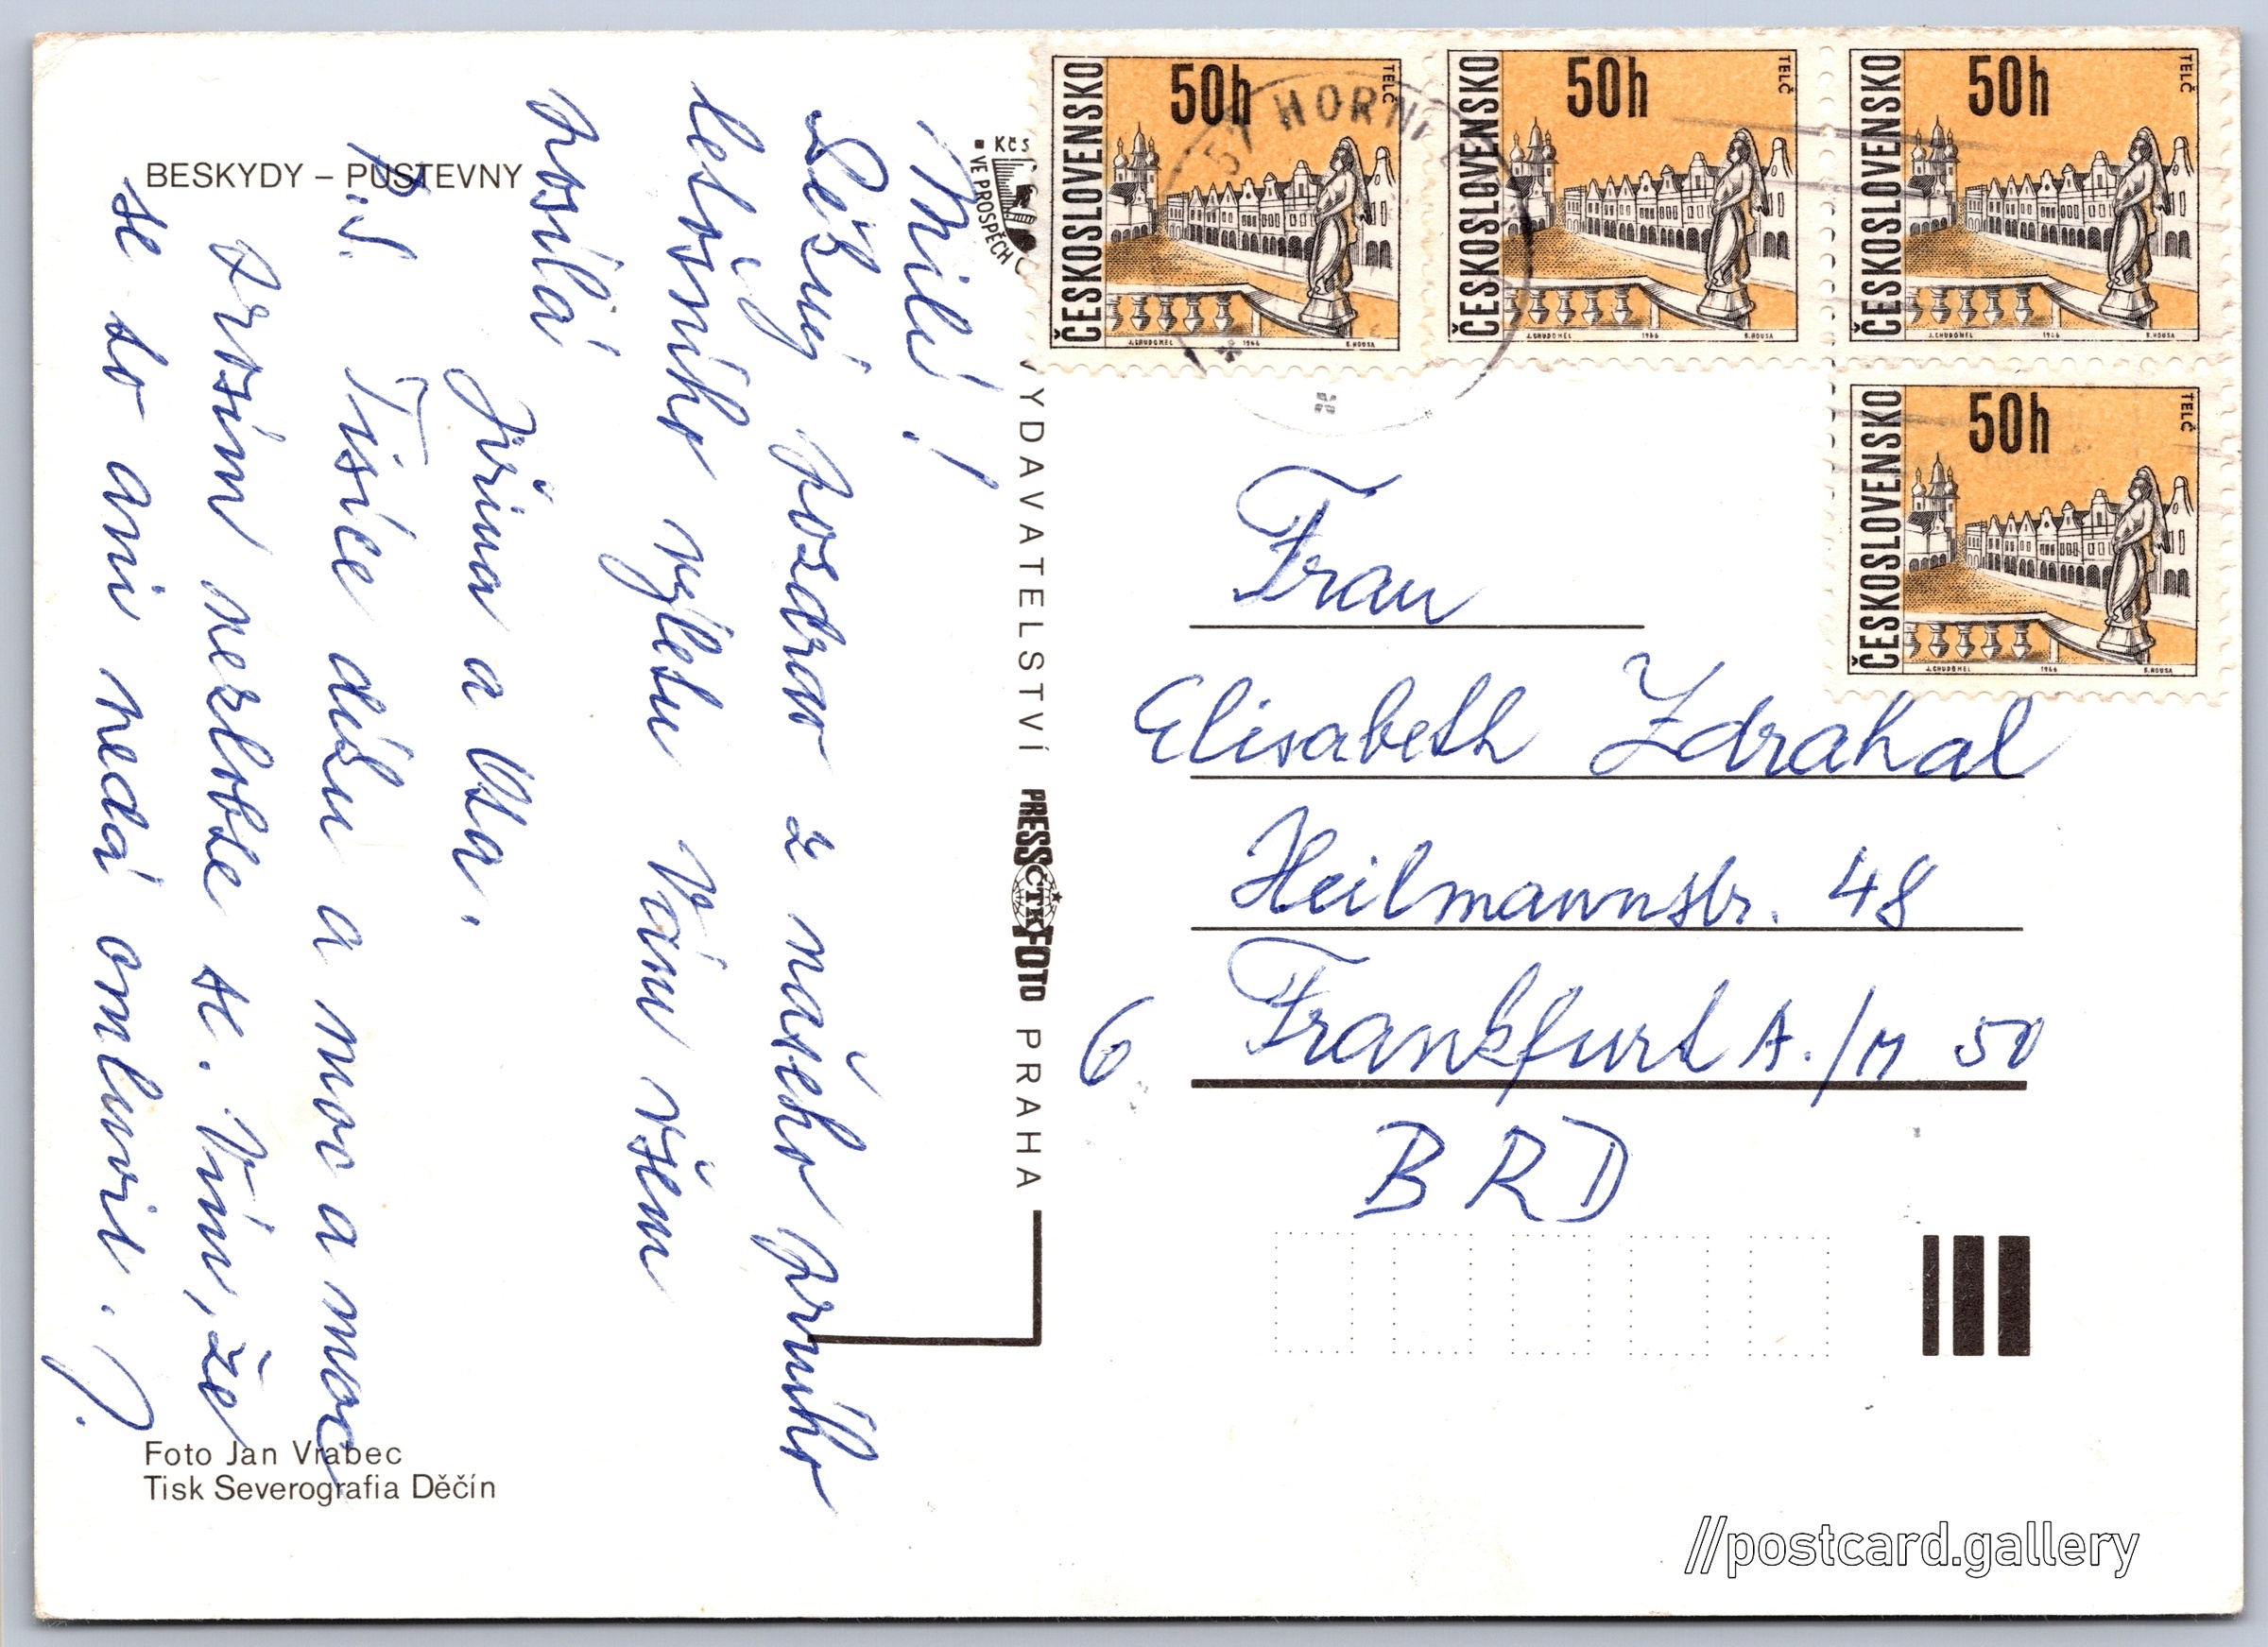 BESKYDY – PUSTEVNY
Milí!
Srdečný pozdrav z našeho prvního
letošního výletu Vám všem
posílá
Jiřina a
P.S. Tisíce díků a moc a moc
prosím nezlobte se. Vím, že
se to ani nedá omluvit. J.
Foto Jan Vrabec
Tisk Severografia Děčín
VYDAVATELSTVÍ PRESSFOTO ČTK PRAHA
Kčs
VE PROSPĚCH
57 HORNÍ
ČESKOSLOVENSKO 50h TELČ
J.CHUDOMEL 1966 B.HOUSA
ČESKOSLOVENSKO 50h TELČ
J.CHUDOMEL 1966 B.HOUSA
ČESKOSLOVENSKO 50h TELČ
J.CHUDOMEL 1966 B.HOUSA
ČESKOSLOVENSKO 50h TELČ
J.CHUDOMEL 1966 B.HOUSA
Frau
Elisabeth Zdrahal
Heilmannstr. 48
6 Frankfurt A./M 50
BRD
//postcard.gallery